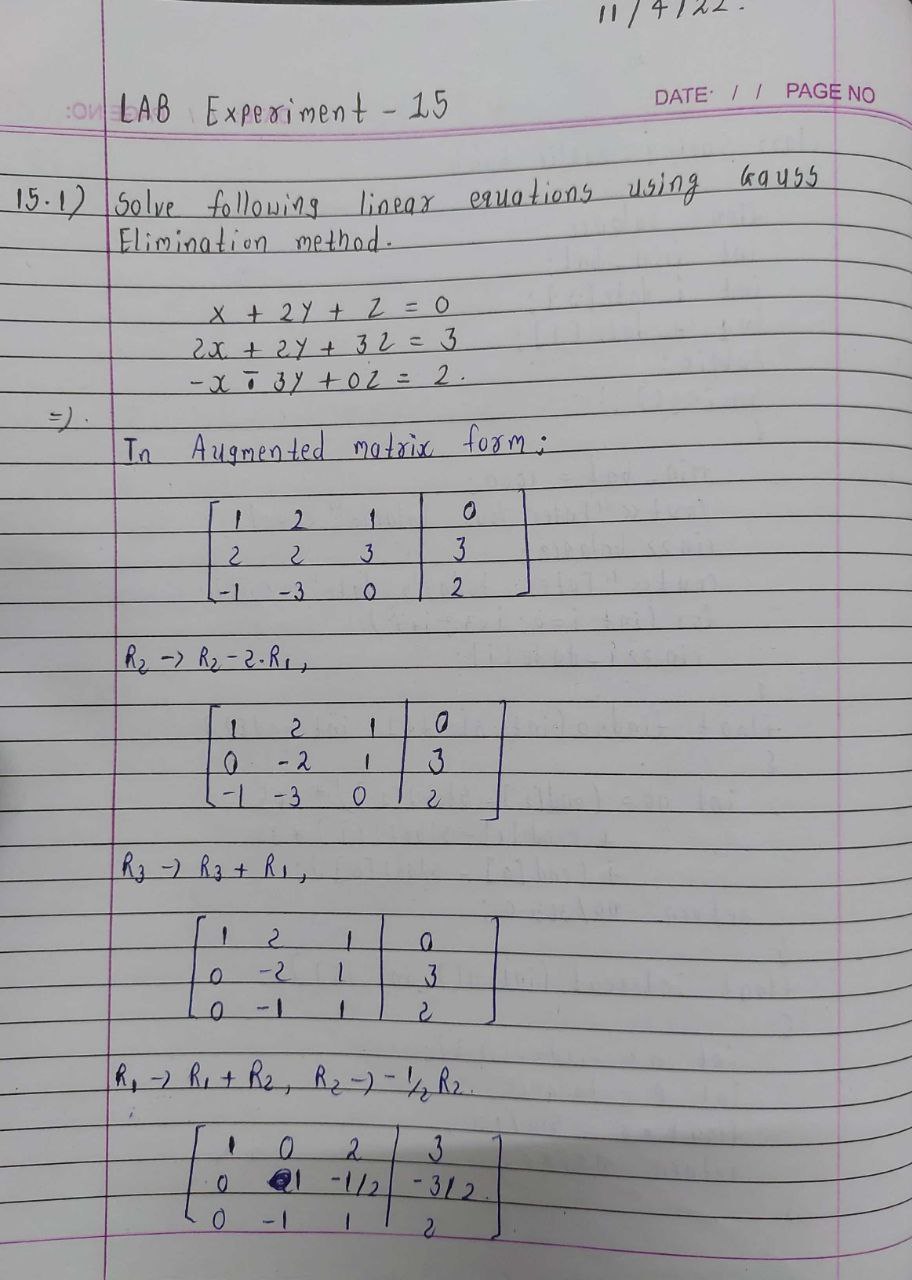 11/4/22.
DATE: / / PAGE NO
LAB Experiment - 15
15.1) Solve following linear equations using Gauss
Elimination method.
x + 2y + z = 0
2x + 2y + 3z = 3
-x - 3y + 0z = 2.
=).
In Augmented matrix form;
1 2 1 | 0
2 2 3 | 3
-1 -3 0 | 2
R₂ -> R₂ - 2·R₁,
1 2 1 | 0
0 -2 1 | 3
-1 -3 0 | 2
R₃ -> R₃ + R₁,
1 2 1 | 0
0 -2 1 | 3
0 -1 1 | 2
R₁ -> R₁ + R₂, R₂ -> -1/2 R₂.
1 0 2 | 3
0 1 -1/2 | -3/2
0 -1 1 | 2